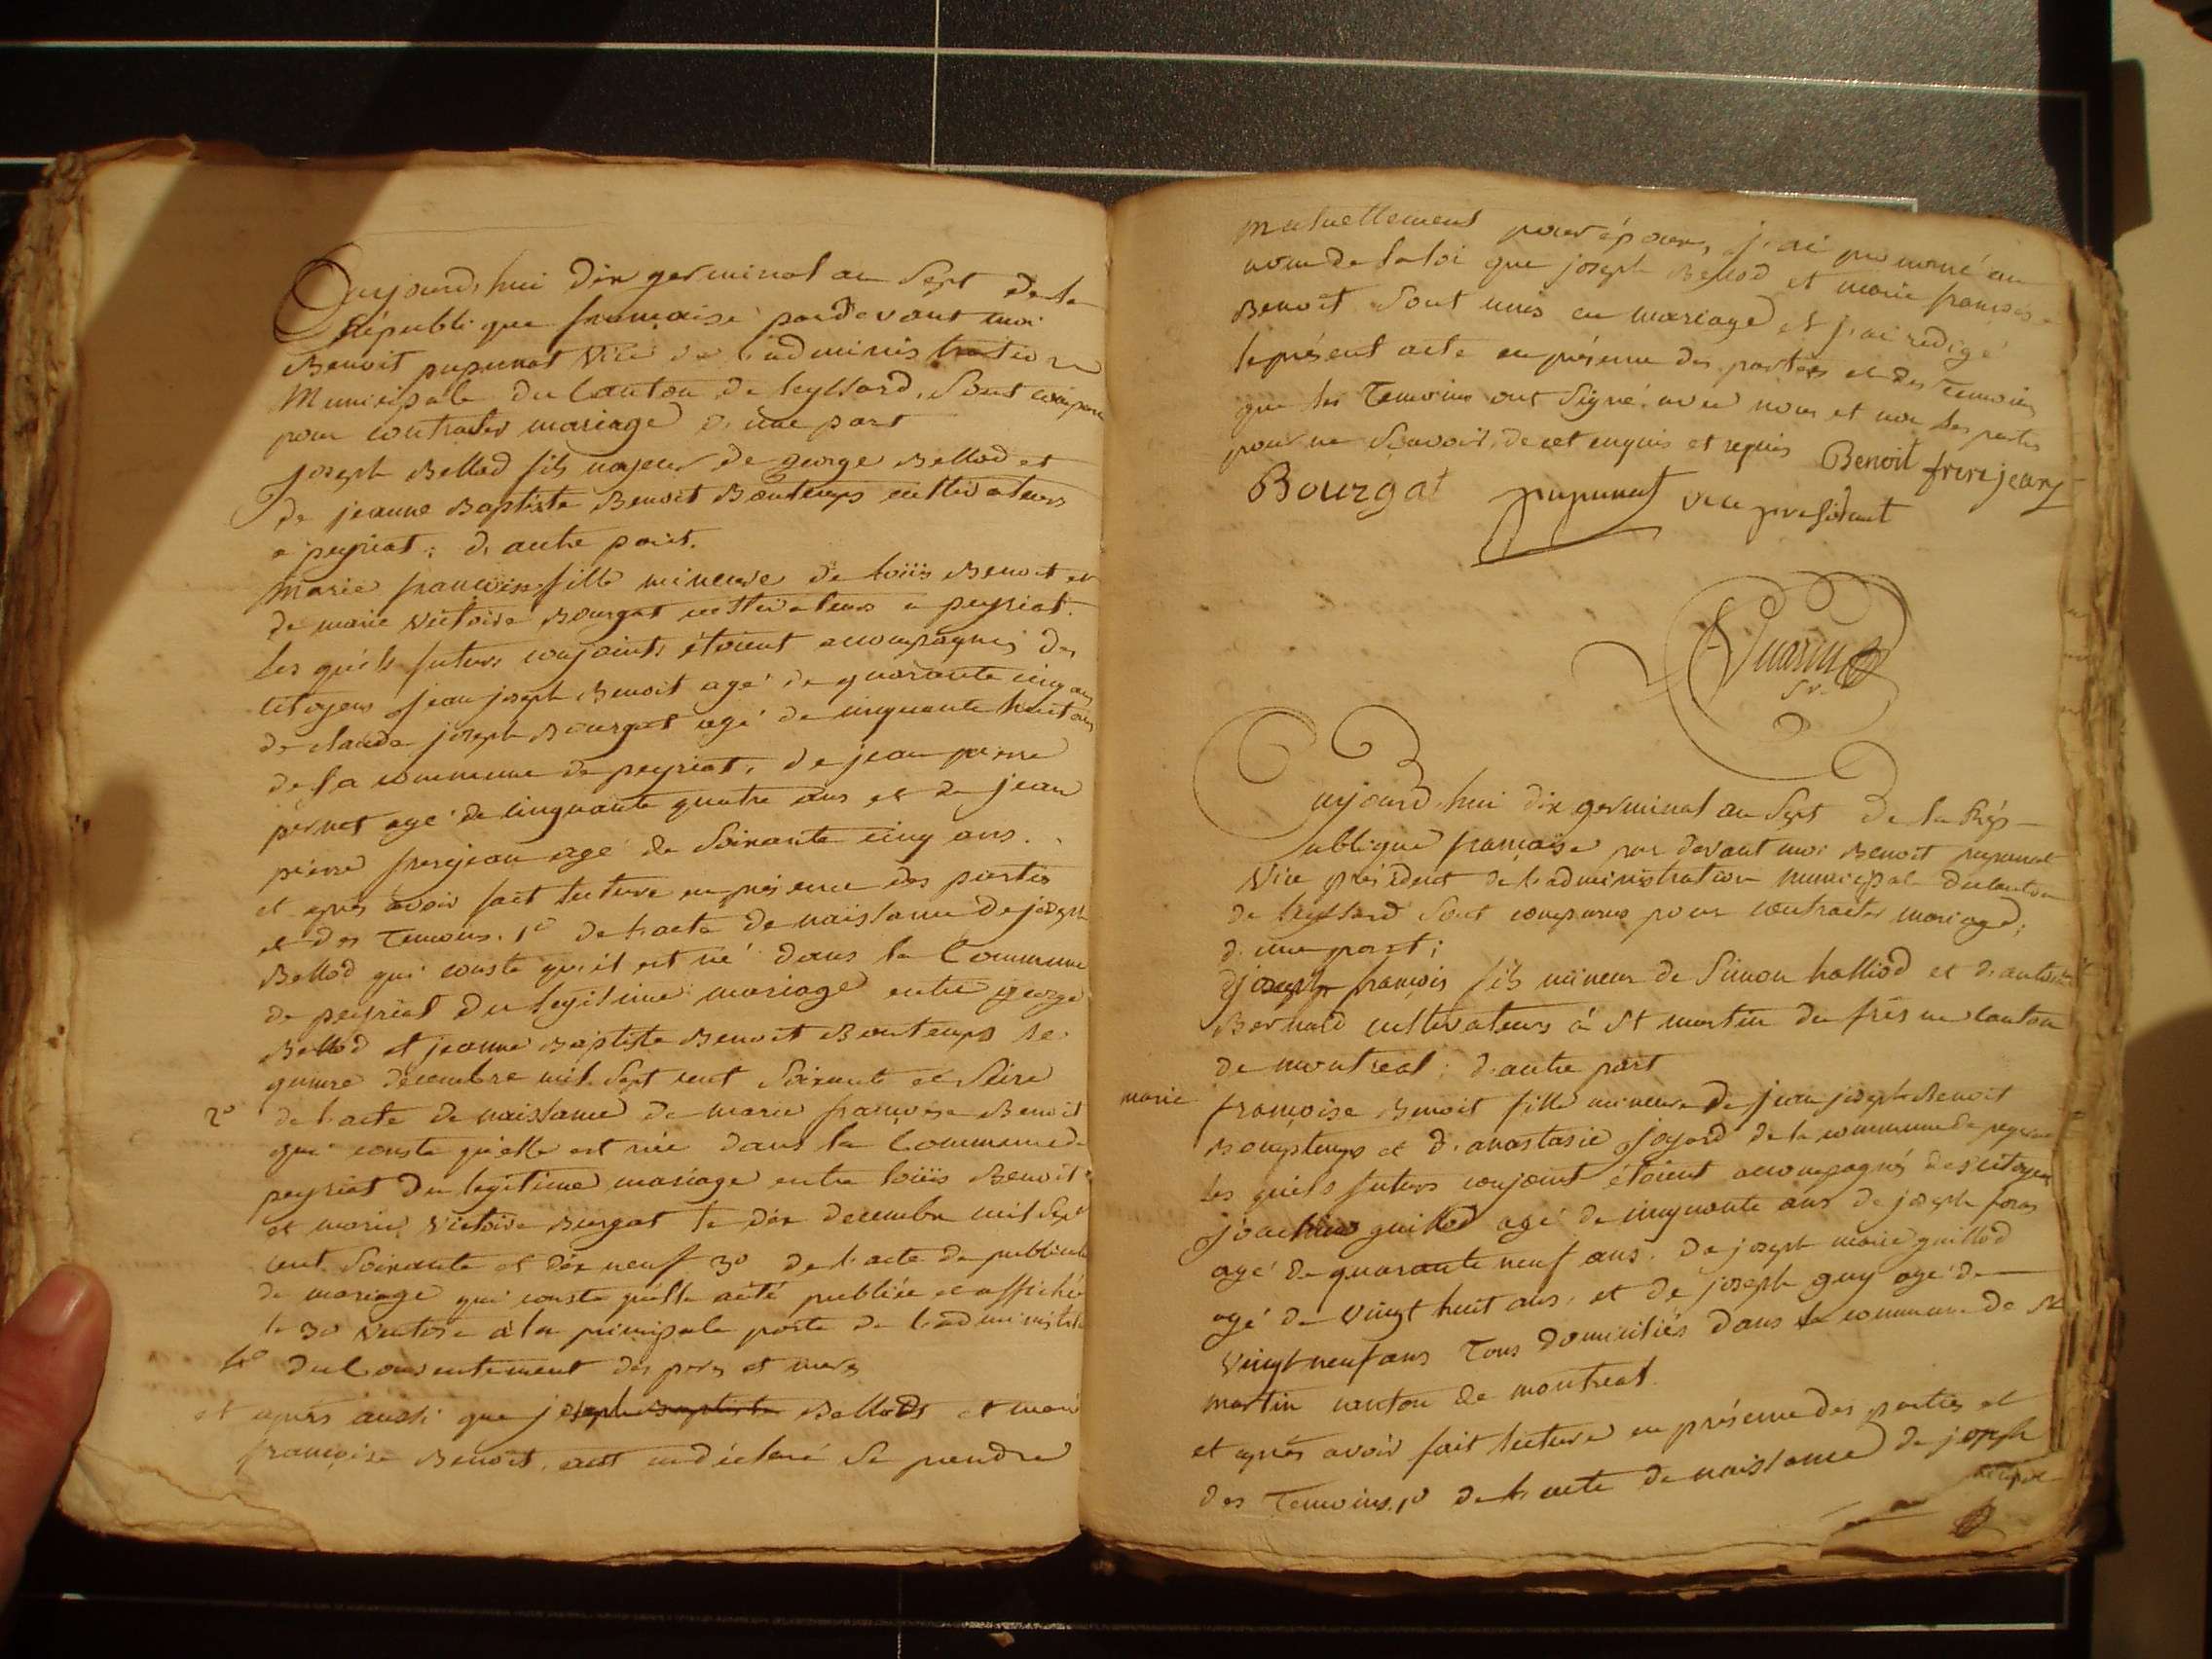 Aujourd'hui dix germinal an Sept de la
République française pardevant moi
Benoit pupunat Vice de l'administration
Municipale du Canton de leyssard, Sont comparu
pour contracter mariage d'une part
joseph Bellod fils majeur de george Bellod et
de jeanne Baptiste Benoit Bontemps cultivateurs
a peyriat; d'autre part.
Marie françoise fille mineure de loüis Benoit et
de marie victoire Bourgat cultivateurs a peyriat.
les quels futurs conjoints étoient accompagnés des
citoyens jean joseph Benoit agé de quarante cinq ans
de claude joseph Bourgat agé de cinquante huit ans
de la commune de peyriat, de jean pierre
pernet agé de cinquante quatre ans et de jean
pierre frerejean agé de Soixante cinq ans.
et après avoir fait lecture en présence des parties
et des Temoins. 1º de l'acte de naissance de joseph
Bellod qui conste qu'il est né dans la Commune
de peyriat du legitime mariage entre george
Bellod et jeanne Baptiste Benoit Bontemps le
quinze décembre mil Sept cent Soixante et Seize
2º de l'acte de naissance de marie françoise Benoit
qui conste qu'elle est née dans la Commune de
peyriat du legitime mariage entre loüis Benoit
et marie Victoire Burgat le dix decembre mil Sept
cent Soixante et dix neuf 3º de l'acte de publicat
de mariage qui conste quelle a été publiée et affiché
le 30 Ventose a la principale porte de l'administrat
4º du Consentement des peres et meres
et après aussi que joseph Baptiste Bellod et marie
françoise Benoit, ont déclaré Se prendre
Mutuellement pour épouses, j'ai prononcé au
nom de la loi que joseph Bellod et marie françoise
Benoit Sont unis en mariage et j'ai redigé
le présent acte en présence des parties et des Temoins
que les Temoins ont Signé avec nous et non les parties
pour ne Savoir, de cet enquis et requis Benoit frerejean
Bourgat pupunat vice president
Sr.
Aujourd'hui dix germinal an Sept de la Rép
ublique française par devant moi Benoit pupunat
Vice président de l'administration municipale du canton
de leyssard Sont comparus pour contracter mariage;
d'une part;
joseph françois fils mineur de Simon halliod et d'antoi
Bernard cultivateurs à St martin du frêne canton
de montreal; d'autre part
marie françoise Benoit fille mineure de jean joseph Benoit
Bomptemps et d'anastasie joyard de la commune de peyriat
les quels futurs conjoint étoient accompagnés des citoyens
joachim guillod agé de cinquante ans de joseph foras
agé de quarante neuf ans. de joseph marie guillod
agé de vingt huit ans, et de joseph guy agé de
Vingt neuf ans Tous domiciliés dans la commune de St
martin canton de montreal.
et après avoir fait lecture en présence des parties et
des Temoins, 1º de l'acte de naissance de joseph